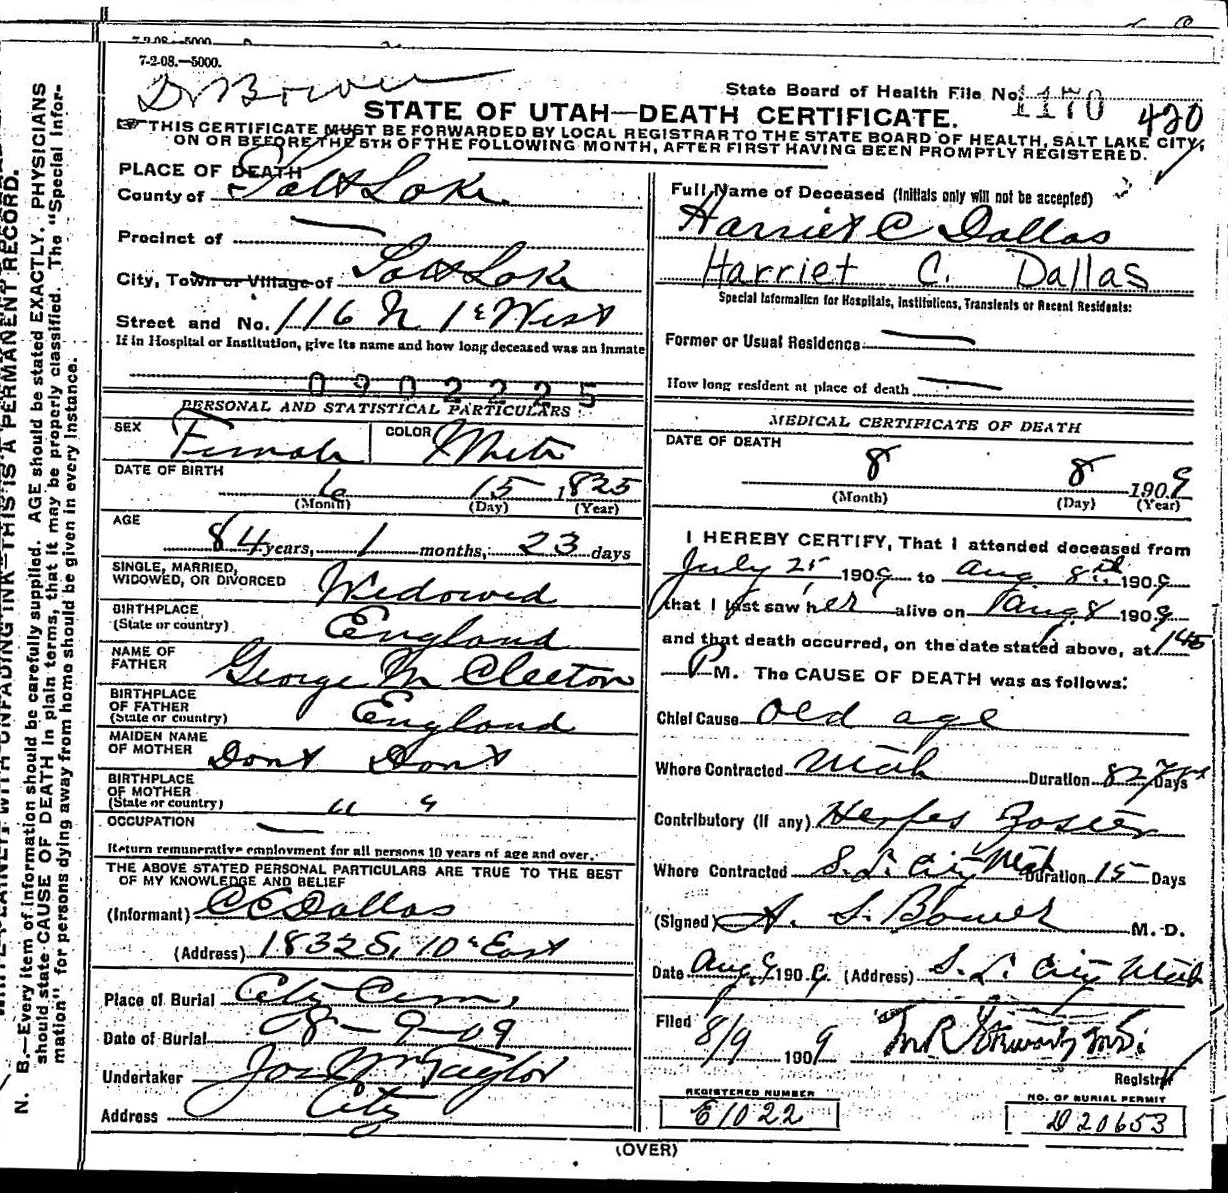 7-2-08.—5000.
7-2-08.—5000.
Dr Bower
State Board of Health File No. 1170 420
STATE OF UTAH—DEATH CERTIFICATE.
☞ THIS CERTIFICATE MUST BE FORWARDED BY LOCAL REGISTRAR TO THE STATE BOARD OF HEALTH, SALT LAKE CITY,
ON OR BEFORE THE 5TH OF THE FOLLOWING MONTH, AFTER FIRST HAVING BEEN PROMPTLY REGISTERED.
PLACE OF DEATH
County of Salt Lake
Precinct of —
City, Town or Village of Salt Lake
Street and No. 116 N 1st West
If in Hospital or Institution, give its name and how long deceased was an inmate
0902225
PERSONAL AND STATISTICAL PARTICULARS
SEX Female COLOR White
DATE OF BIRTH
6 15 1825
(Month) (Day) (Year)
AGE
84 years, 1 months, 23 days
SINGLE, MARRIED,
WIDOWED, OR DIVORCED Widowed
BIRTHPLACE
(State or country) England
NAME OF
FATHER George M Cleeton
BIRTHPLACE
OF FATHER
(State or country) England
MAIDEN NAME
OF MOTHER Dont Dont
BIRTHPLACE
OF MOTHER
(State or country) " "
OCCUPATION —
Return remunerative employment for all persons 10 years of age and over.
THE ABOVE STATED PERSONAL PARTICULARS ARE TRUE TO THE BEST
OF MY KNOWLEDGE AND BELIEF
(Informant) C E Dallas
(Address) 1832 S, 10th East
Place of Burial City Cem,
Date of Burial 8-9-09
Undertaker Jos Wm Taylor
Address City
Full Name of Deceased (Initials only will not be accepted)
Harriet C Dallas
Harriet C. Dallas
Special Information for Hospitals, Institutions, Transients or Recent Residents:
Former or Usual Residence —
How long resident at place of death —
MEDICAL CERTIFICATE OF DEATH
DATE OF DEATH
8 8 1909
(Month) (Day) (Year)
I HEREBY CERTIFY, That I attended deceased from
July 25 1909 to Aug 8th 1909
that I last saw her alive on Aug 8 1909
and that death occurred, on the date stated above, at 145
P M. The CAUSE OF DEATH was as follows:
Chief Cause Old age
Where Contracted Utah Duration 82 Days
Contributory (if any) Herpes Zoster
Where Contracted S. L. City Utah Duration 15 Days
(Signed) A. S. Bower M. D.
Date Aug 9 1909 (Address) S. L. City Utah
Filed
8/9 1909 M R Stewart M.D.
Registrar
REGISTERED NUMBER
E1022
NO. OF BURIAL PERMIT
D20653
(OVER)
WRITE PLAINLY WITH UNFADING INK—THIS IS A PERMANENT RECORD.
N. B.—Every item of information should be carefully supplied. AGE should be stated EXACTLY. PHYSICIANS
should state CAUSE OF DEATH in plain terms, that it may be properly classified. The "Special Infor-
mation" for persons dying away from home should be given in every instance.